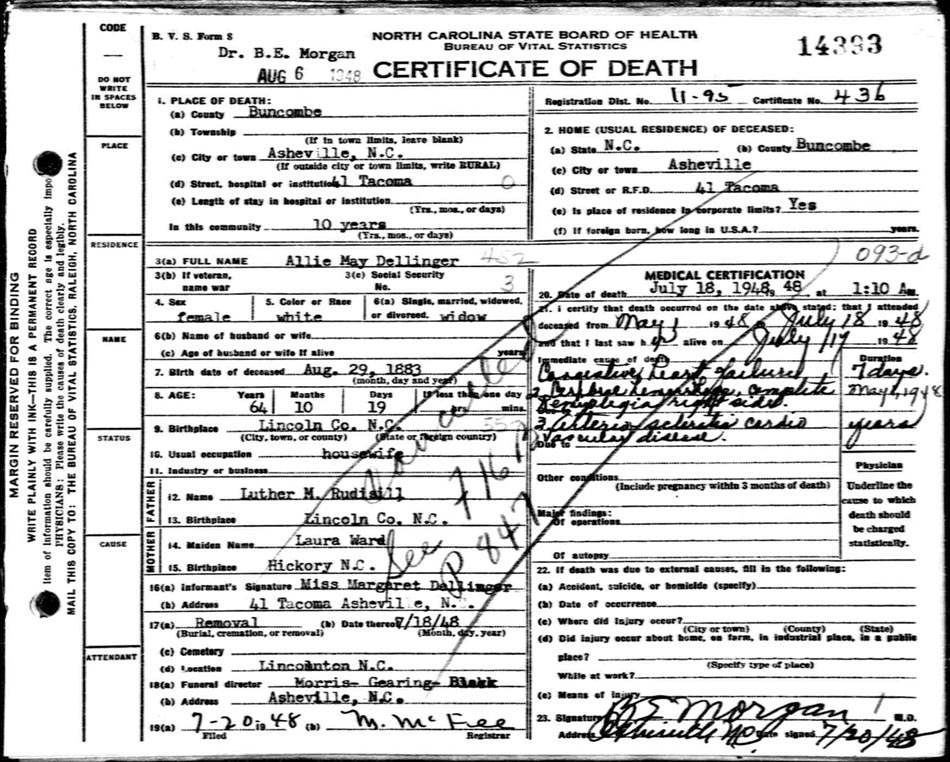 CODE
—
DO NOT
WRITE
IN SPACES
BELOW
PLACE
RESIDENCE
NAME
STATUS
CAUSE
ATTENDANT
MARGIN RESERVED FOR BINDING
WRITE PLAINLY WITH INK—THIS IS A PERMANENT RECORD
item of information should be carefully supplied. The correct age is especially impo
PHYSICIANS: Please write the causes of death clearly and legibly.
MAIL THIS COPY TO: THE BUREAU OF VITAL STATISTICS, RALEIGH, NORTH CAROLINA
B. V. S. Form 8
Dr. B.E. Morgan
AUG 6 1948
NORTH CAROLINA STATE BOARD OF HEALTH
BUREAU OF VITAL STATISTICS
CERTIFICATE OF DEATH
14393
Registration Dist. No. 11-95 Certificate No. 436
1. PLACE OF DEATH:
(a) County Buncombe
(b) Township
(If in town limits, leave blank)
(c) City or town Asheville, N.C.
(If outside city or town limits, write RURAL)
(d) Street, hospital or institution 41 Tacoma 0
(e) Length of stay in hospital or institution
(Yrs., mos., or days)
In this community 10 years
(Yrs., mos., or days)
2. HOME (USUAL RESIDENCE) OF DECEASED:
(a) State N.C. (b) County Buncombe
(c) City or town Asheville
(d) Street or R.F.D. 41 Tacoma
(e) Is place of residence in corporate limits? Yes
(f) If foreign born, how long in U.S.A.? years.
3(a) FULL NAME Allie May Dellinger 452
093-d
3(b) If veteran,
name war
3(c) Social Security
No. 3
4. Sex
female
5. Color or Race
white
6(a) Single, married, widowed,
or divorced. widow
6(b) Name of husband or wife
(c) Age of husband or wife if alive years
7. Birth date of deceased Aug. 29, 1883
(month, day and year)
8. AGE: Years Months Days If less than one day
64 10 19 hrs. mins.
9. Birthplace Lincoln Co. N.C.
(City, town, or county) (State or foreign country)
10. Usual occupation housewife
11. Industry or business
FATHER
12. Name Luther M. Rudisill
13. Birthplace Lincoln Co. N.C.
MOTHER
14. Maiden Name Laura Ward
15. Birthplace Hickory N.C.
16(a) Informant's Signature Miss Margaret Dellinger
(b) Address 41 Tacoma Asheville, N.C.
17(a) Removal (b) Date thereof 7/18/48
(Burial, cremation, or removal) (Month, day, year)
(c) Cemetery
(d) Location Lincolnton N.C.
18(a) Funeral director Morris- Gearing- Black
(b) Address Asheville, N.C.
19(a) 7-20 19 48 (b) M. McFee
Filed Registrar
See
P 847
MEDICAL CERTIFICATION
20. Date of death July 18, 1948, 48, at 1:10 Am.
21. I certify that death occurred on the date above stated; that I attended
deceased from May 1 1948 to July 18 1948
and that I last saw her alive on July 17 1948
Immediate cause of death Duration
Congestive heart failure 7 days.
2. Cerebral hemorrhage, complete May 1, 1948
hemiplegia right side.
3. Arterio sclerotic cardio years
Due to vascular disease.
Other conditions
(Include pregnancy within 3 months of death)
Major findings:
Of operations
Of autopsy
Physician
Underline the
cause to which
death should
be charged
statistically.
22. If death was due to external causes, fill in the following:
(a) Accident, suicide, or homicide (specify)
(b) Date of occurrence
(c) Where did injury occur?
(City or town) (County) (State)
(d) Did injury occur about home, on farm, in industrial place, in a public
place?
(Specify type of place)
While at work?
(e) Means of injury
23. Signature B E Morgan M.D.
Address Asheville NC Date signed 7/20/48